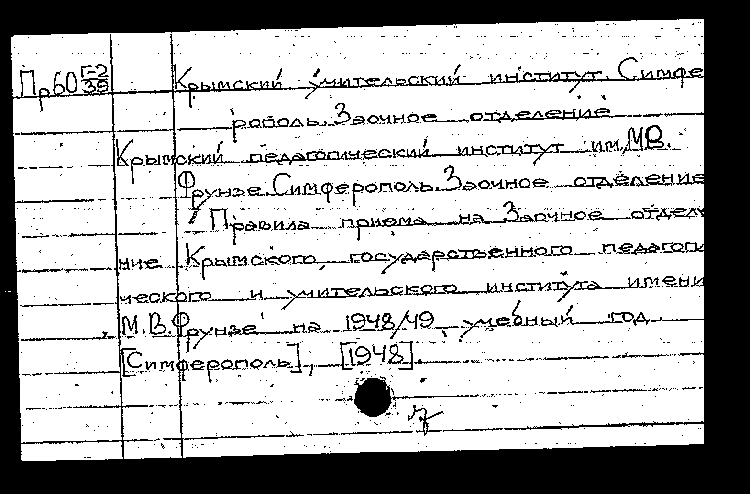 Пр60 Г-2/39 Крымский учительский институт. Симфе
рополь. Заочное отделение
Крымский педагогический институт им. М.В.
Фрунзе. Симферополь. Заочное отделение
Правила приема на Заочное отделе
ние Крымского, государственного педагоги
ческого и учительского института имени
М.В.Фрунзе на 1948/49 учебный год.
[Симферополь], [1948].